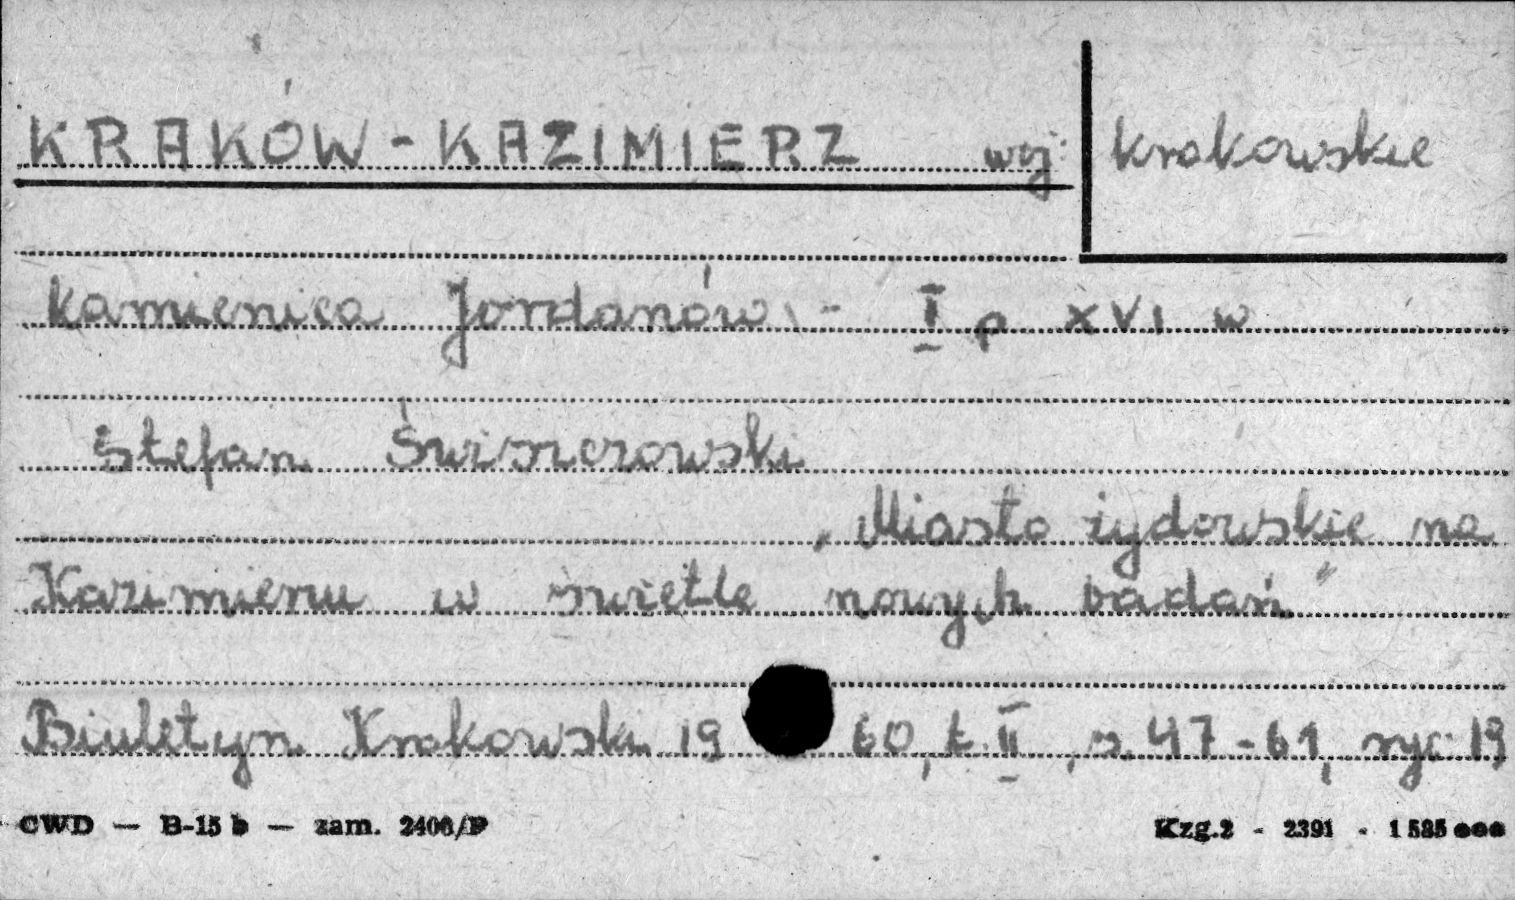 KRAKÓW - KAZIMIERZ woj: krakowskie
Kamienica Jordanów - I p XVI w
Stefan Świszczowski
„Miasto żydowskie na
Kazimierzu w świetle nowych badań"
Biuletyn Krakowski 1960, t. II, s. 47-61, ryc 19
CWD — B-15 b — zam. 2406/P Kzg.2 - 2391 - 1 585 000